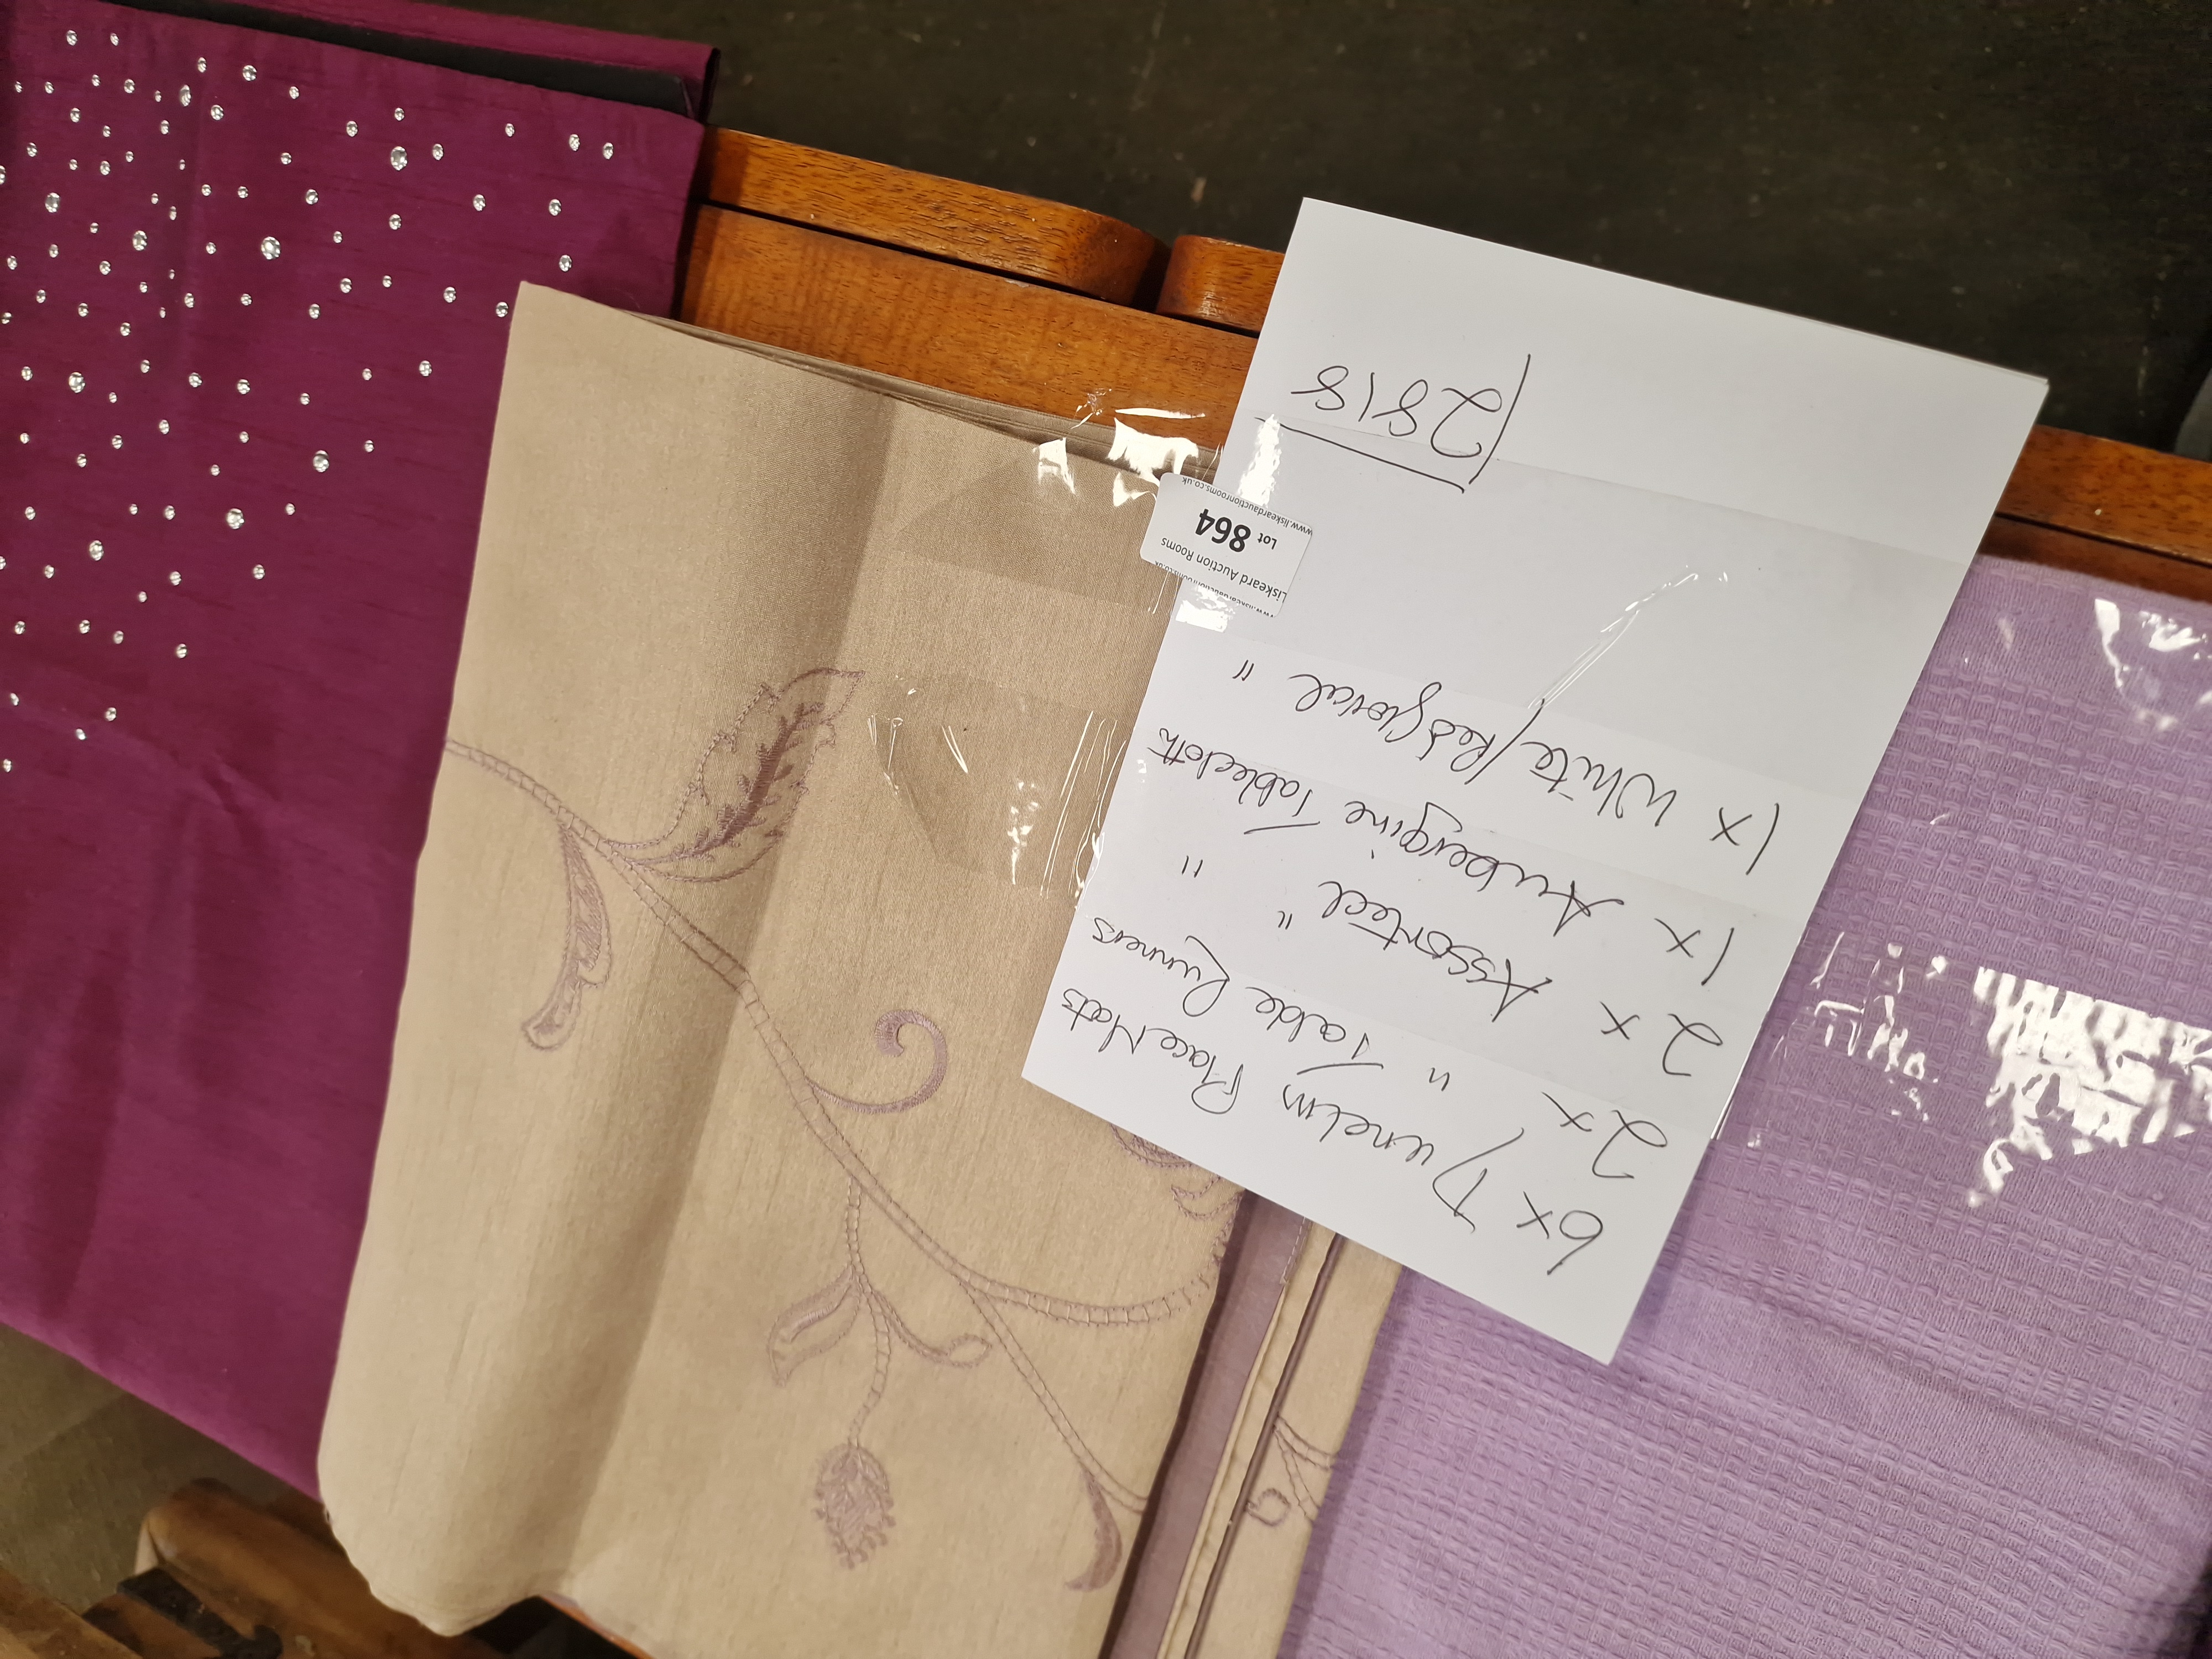 6x Dunelm Place Mats
2x " Table Runners
2x Assorted " "
1x Aubergine Tablecloth
1x White/Red floral "
www.liskeardauctionrooms.co.uk
Liskeard Auction Rooms
Lot 864
www.liskeardauctionrooms.co.uk
2818